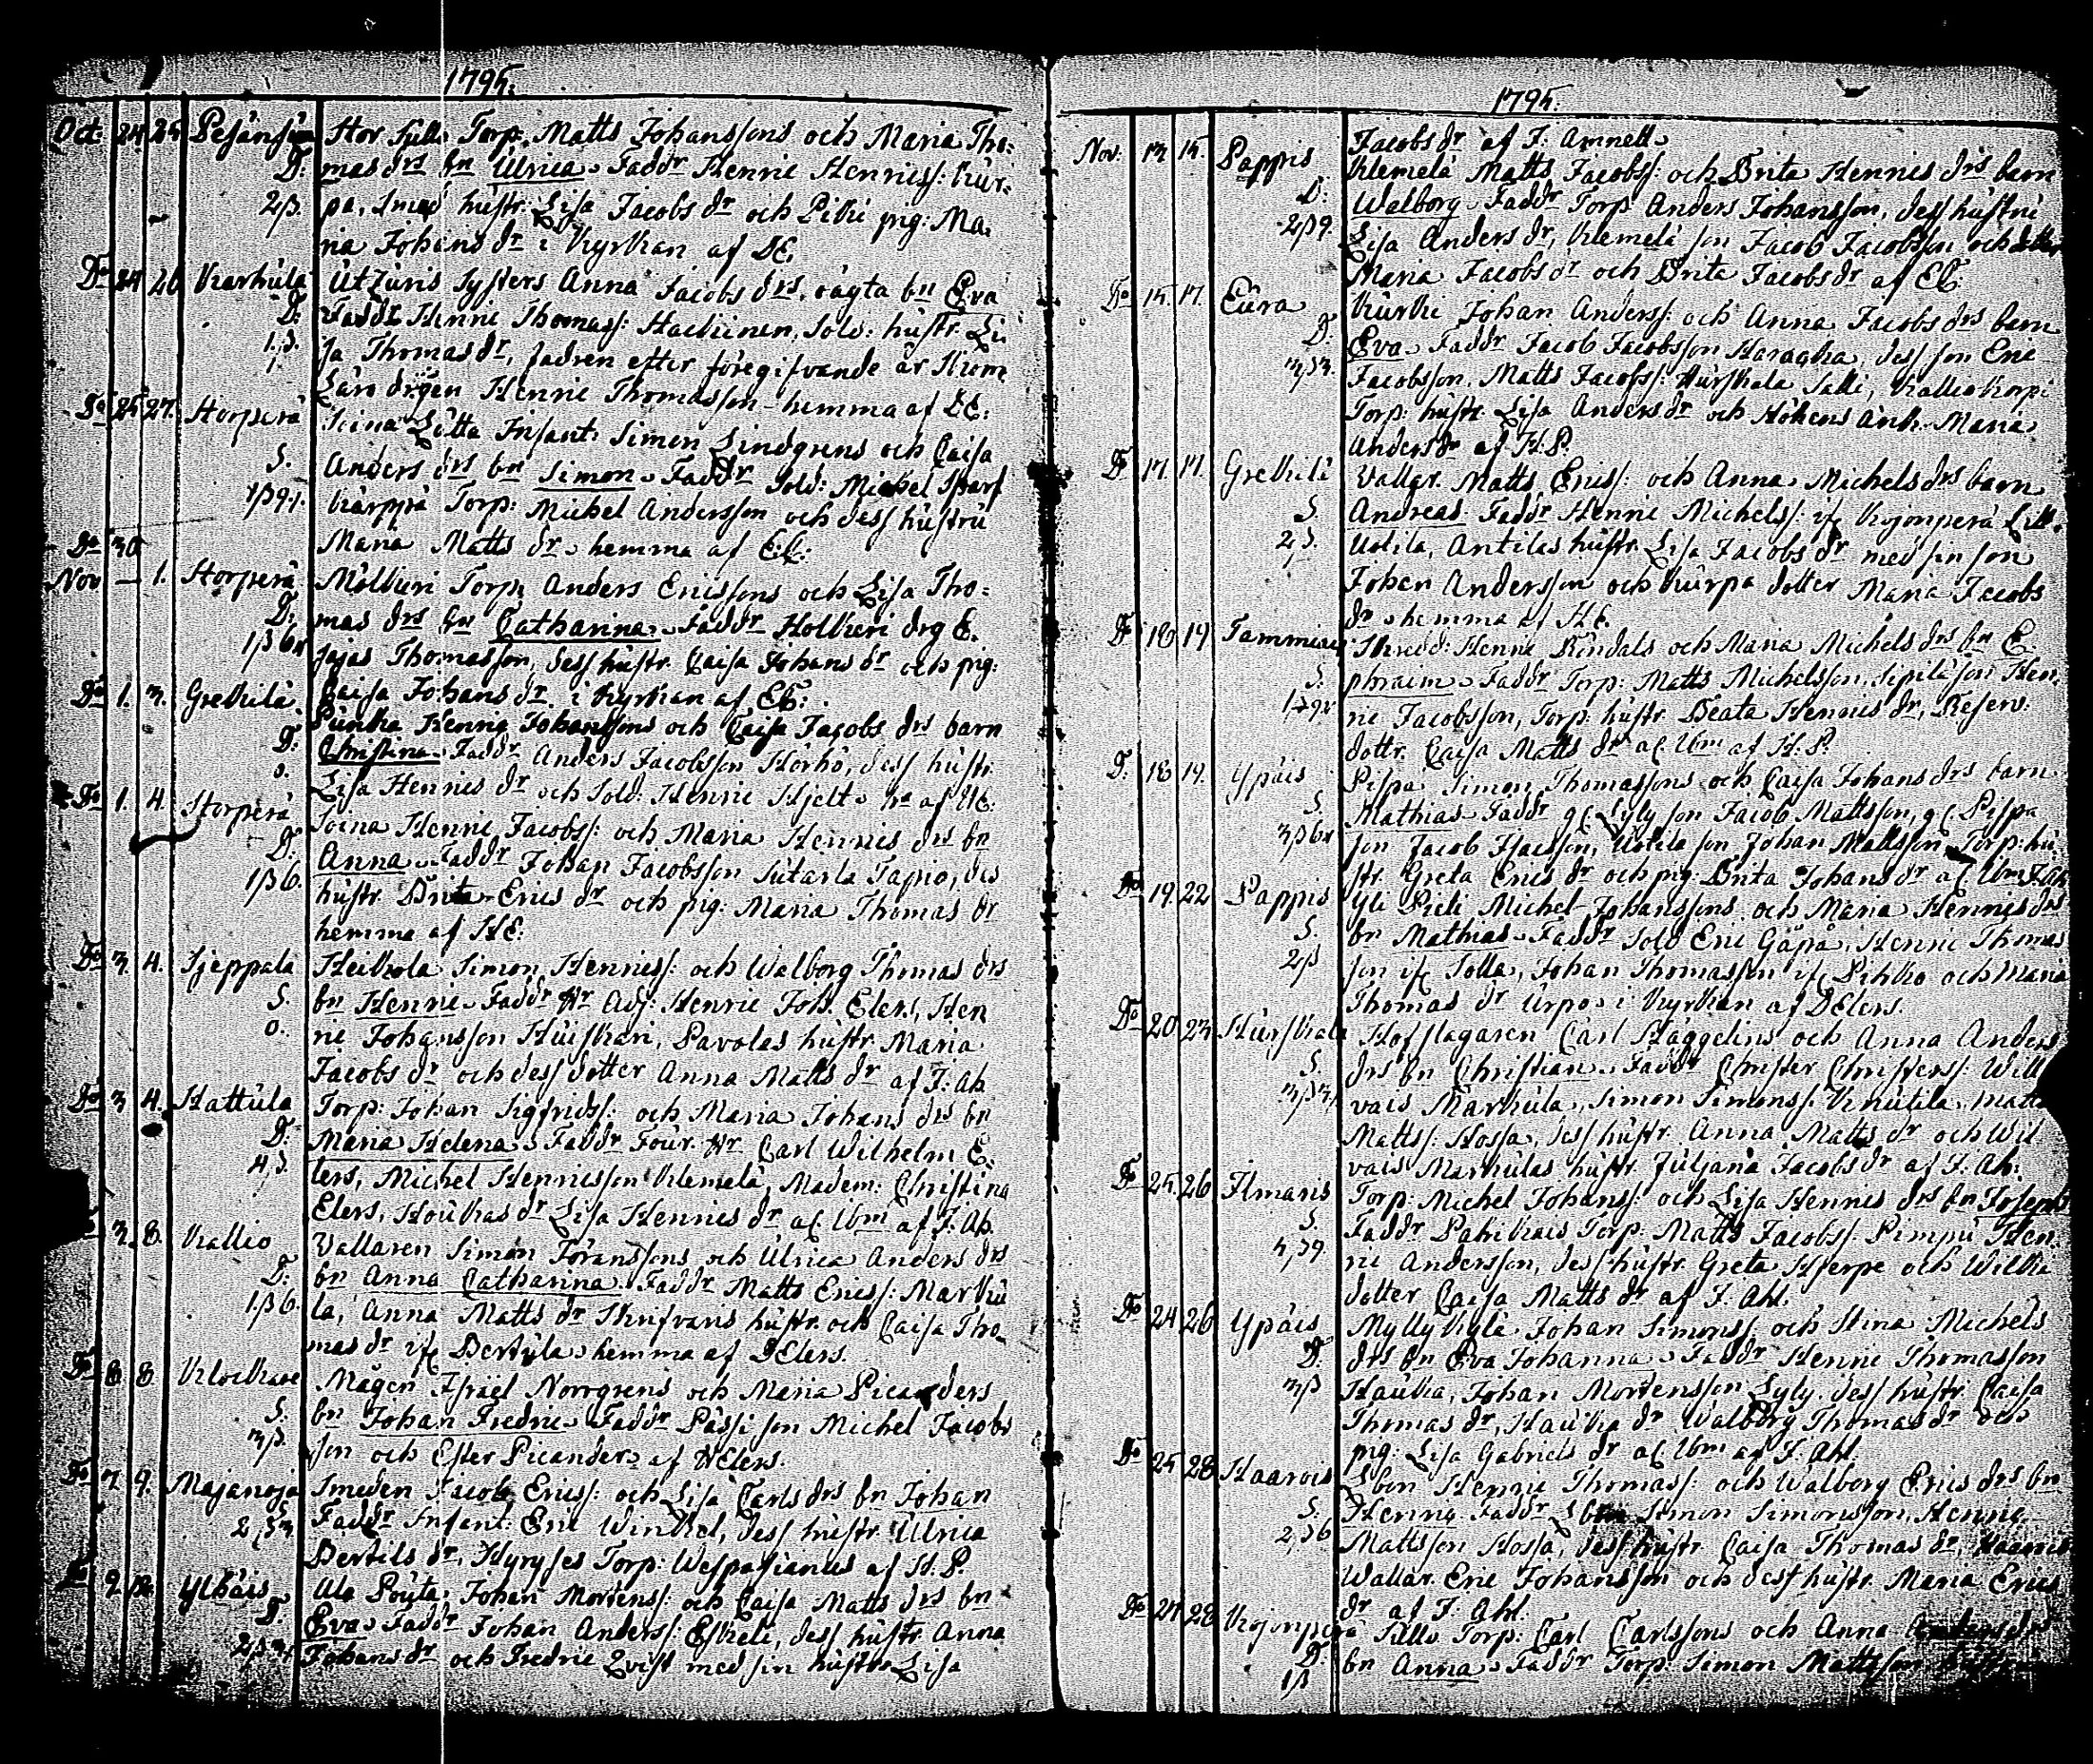 1795.
Oct: 24 25 Pesänsuo Stor Sulln Torp: Matts Johanssons och Maria Tho=
D: mas drs bn Ulrica. Faddr Henric Henricss: Kur=
2ß. pa, Smed hustr: Lisa Jacobs dr och Pitki pig: Ma,
ria Johans dr i Kyrkan af DE.
Do 24 26 Karhula Utjuris Systers Anna Jacobs drs oägta bn Eva
D: Faddr Henric Thomass: Hackinen, Sold: hustr. Li
sa Thomas dr, fadren efter föregifvande är Krom
Länsdrgen Henric Thomasson hemma af DE.
Do 25 27. Horperä Stina Lötta Infant: Simon Lindgrens och Caisa
S. Anders drs bn Simon. Faddr Sold: Michel Sparf
Kärppä Torp: Michel Andersson och dess hustru
Maria Matts dr hemma af EE:
Do 30
Nov — 1. Horperä Möllieri Torp: Anders Ericssons och Lisa Tho=
D: mas drs bn Catharina. Faddr Hollieri drg E.
1ß 6 sajas Thomasson, dess hustr. Caisa Johans dr och pig:
Caisa Johans dr i Kyrkan af EE:
Do 1. 3. Grekilä Punka Henric Johanssons och Caisa Jacobs drs barn
D: Christina. Faddr Anders Jacobsson Körhö, dess hustr
0. Lisa Henrics dr och Sold: Henric Hjelt
Do 1. 4. Horperä Soina Henric Jacobss: och Maria Henrics drs bn
D: Anna. Faddr Johan Jacobsson Sutarla Tapio, des
1ß 6. hustr. Brita Erics dr och pig: Maria Thomas dr
hemma af HE:
Do 3. 4. Sjeppala Heikola Simon Henricss: och Walborg Thomas drs
S. bn Henric. Faddr Hr Adj: Henric Joh. Elers, Hen
0. ric Johansson Huiskari, Pavolas hustr Maria
Jacobs dr och dess dotter Anna Matts dr af J: Ah
Do 3 4. Hattula Torp: Johan Sigfridss: och Maria Johans drs bn
D: Maria Helena. Faddr Four. Hr Carl Wilhelm E,
lers, Michel Henricsson Klemelä, Madem: Christina
Elers, Houkas dr Lisa Henrics dr af J. Ah.
3. 8. Kallio Vallaren Simon Göranssons och Ulrica Anders drs
D: bn Anna Catharina. Faddr Matts Ericss: Markü
1ß 6. la, Anna Matts dr hustr. och Caisa Tho=
mas dr Bertula hemma af DElers.
Do 8 8. Klockare Mågen Israel Norrgrens och Maria Picanders
S. bn Johan Fredric. Faddr Pässi son Michel Jacobs
3ß. son och Ester Picander af HElers.
Do 7 9. Majanoja Smeden Jacob Ericss: och Lisa Carls drs bn Johan
Faddr Infant: Eric Winkel, dess hustr Ulrica
Bertils dr, Hyryses Torp: Wespasianus af H. P.
9 Yläis Ala Pouta Johan Mortenss: och Caisa Matts drs bn
D. Eva. Faddr Johan Anderss: Eskeli, dess hustr Anna
Johans dr och Fredric Qvist med sin hustru Lisa
1795.
Jacobs dr af J: Amnell.
Nov: 13 15. Pappis Klemelä Matts Jacobss: och Brita Henrics drs barn
D: Walborg. Faddr Torp Anders Johansson, dess hustru
2ß 9 Lisa Anders dr, Klemelä son Jacob Jacobsson och dotter
Maria Jacobs dr och Brita Jacobs dr af EE:
Do 15. 17. Eura Kurki Johan Anderss: och Anna Jacobs drs barn
D: Eva. Faddr Jacob Jacobsson Haragha, dess son Eric
Jacobsson, Matts Jacobss: Kurskala Salli, Kallio Korpi
Torp: hustr Lisa Anders dr och Hökens änk. Maria
Anders dr af H. P.
Do 17. 17. Grekilä Vallar. Matts Ericss: och Anna Michels drs barn
S. Andreas Faddr Henric Michelss: Kojonperä Lill.
Uotila, Antilas hustr. Lisa Jacobs dr med sin son
Johan Andersson och Kurpa dotter Maria Jacobs
dr hemma af H E.
Do 18 19 Tammiais Skredd: Henric Rindals och Maria Michels drs bn E.
S. phraim. Faddr Torp: Matts Michelsson, Sipilä son Hen,
ric Jacobsson, Torp: hustr. Beata Henrics dr, Reserv:
dottr. Caisa Matts dr af H. P.
D: 18 19. Ypäis Pispa Simon Thomassons och Caisa Johans drs barn
S. Mathias Faddr Lyly son Jacob Mattsson, Pispa
3ß 6 son Jacob Isacsson, Uotila son Johan Mattsson, Torp: hu
str. Greta Erics dr och pig: Brita Johans dr
Do 19. 22 Pappis Yli Pieti Michel Johanssons och Maria Henrics drs
S. bn Mathias. Faddr Sold Eric Gäpå, Henric Thomas
2ß son Tolla, Johan Thomasson Pihko och Maria
Thomas dr Urpo i Kyrkan af DElers.
Do 20 23 Kurskala Hofslagaren Carl Häggelins och Anna Anders
S. drs bn Christian. Faddr Christer Christerss: Will
vais Markula, Simon Simonss: Knutila, Matts
Mattss: Hossa, dess hustr. Anna Matts dr och Wil
vais Markulas hustr Juljana Jacobs dr af J: Ah:
Do 25. 26 Ilmaris Torp: Michel Johanss: och Lisa Henrics drs bn Joseph
S. Faddr Pahikais Torp: Matts Jacobss: Pimpu Hen
ric Andersson, dess hustr. Greta Hjerpe och Wilka
dotter Caisa Matts dr af J. Ahl.
Do 24 26 Ypäis Mylly Kylä Johan Simonss: och Stina Michels
D. drs bn Eva Johanna. Faddr Henric Thomasson
3ß Hauka, Johan Mortensson Lyly, dess hustr. Caisa
Thomas dr, Hauka dr Walborg Thomas dr och
pig: Lisa Gabriels dr af J. Ahl.
Do 25 28 Haarois Sbon Henric Thomass: och Walborg Erics drs bn
S. Henric. Faddr Simon Simonsson, Henric
2ß 6 Mattsson Hossa, dess hustr. Caisa Thomas dr, Haarois
Wallar. Eric Johansson och dess hustr. Maria Erics
dr af J: Ahl.
Do 27 28 Kojonperä Sillo Torp: Carl Carlssons och Anna Anders dr
D: bn Anna. Faddr Torp: Simon Mattsson
1ß